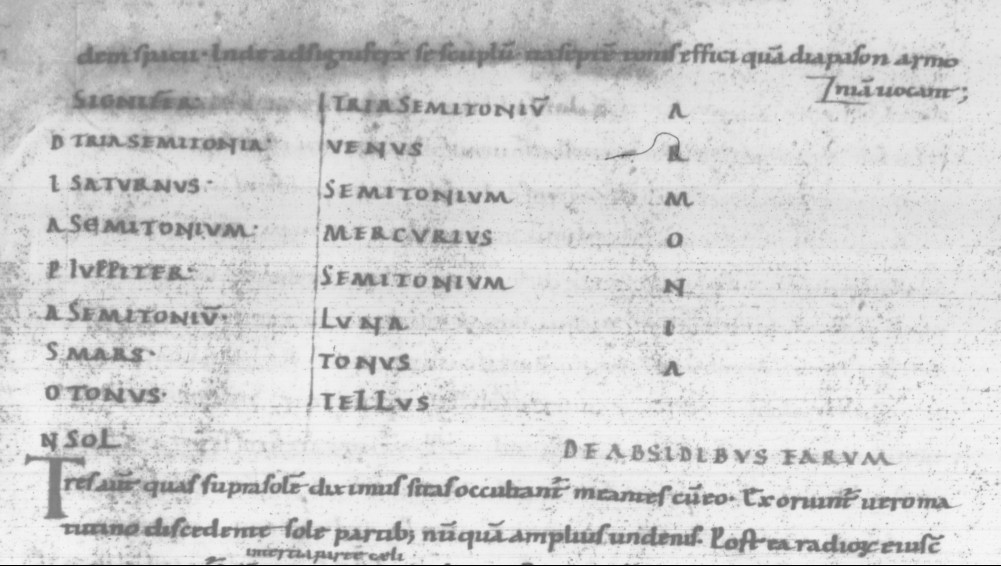 dem spacii. Inde ad signiferꝝ sescuplū. na septē tonis effici quā diapason armo
niā uocant;
SIGNIFER. TRIA SEMITONIV̄ A
D TRIA SEMITONIA. VENVS R
I SATVRNVS. SEMITONIVM M
A SEMITONIVM. MERCVRIVS O
P IVPPITER. SEMITONIVM N
A SEMITONIV̄. LVNA I
S MARS. TONVS A
O TONVS. TELLVS
N SOL
DE ABSIDIBVS EARVM
Tres aut̄ quas supra solē diximus sitas occultant̄ meantes cū eo. Exoriunt̄ uero ma
tutino discedente sole partib; nū quā amplius undenis. Postea radioꝝ eius c̄